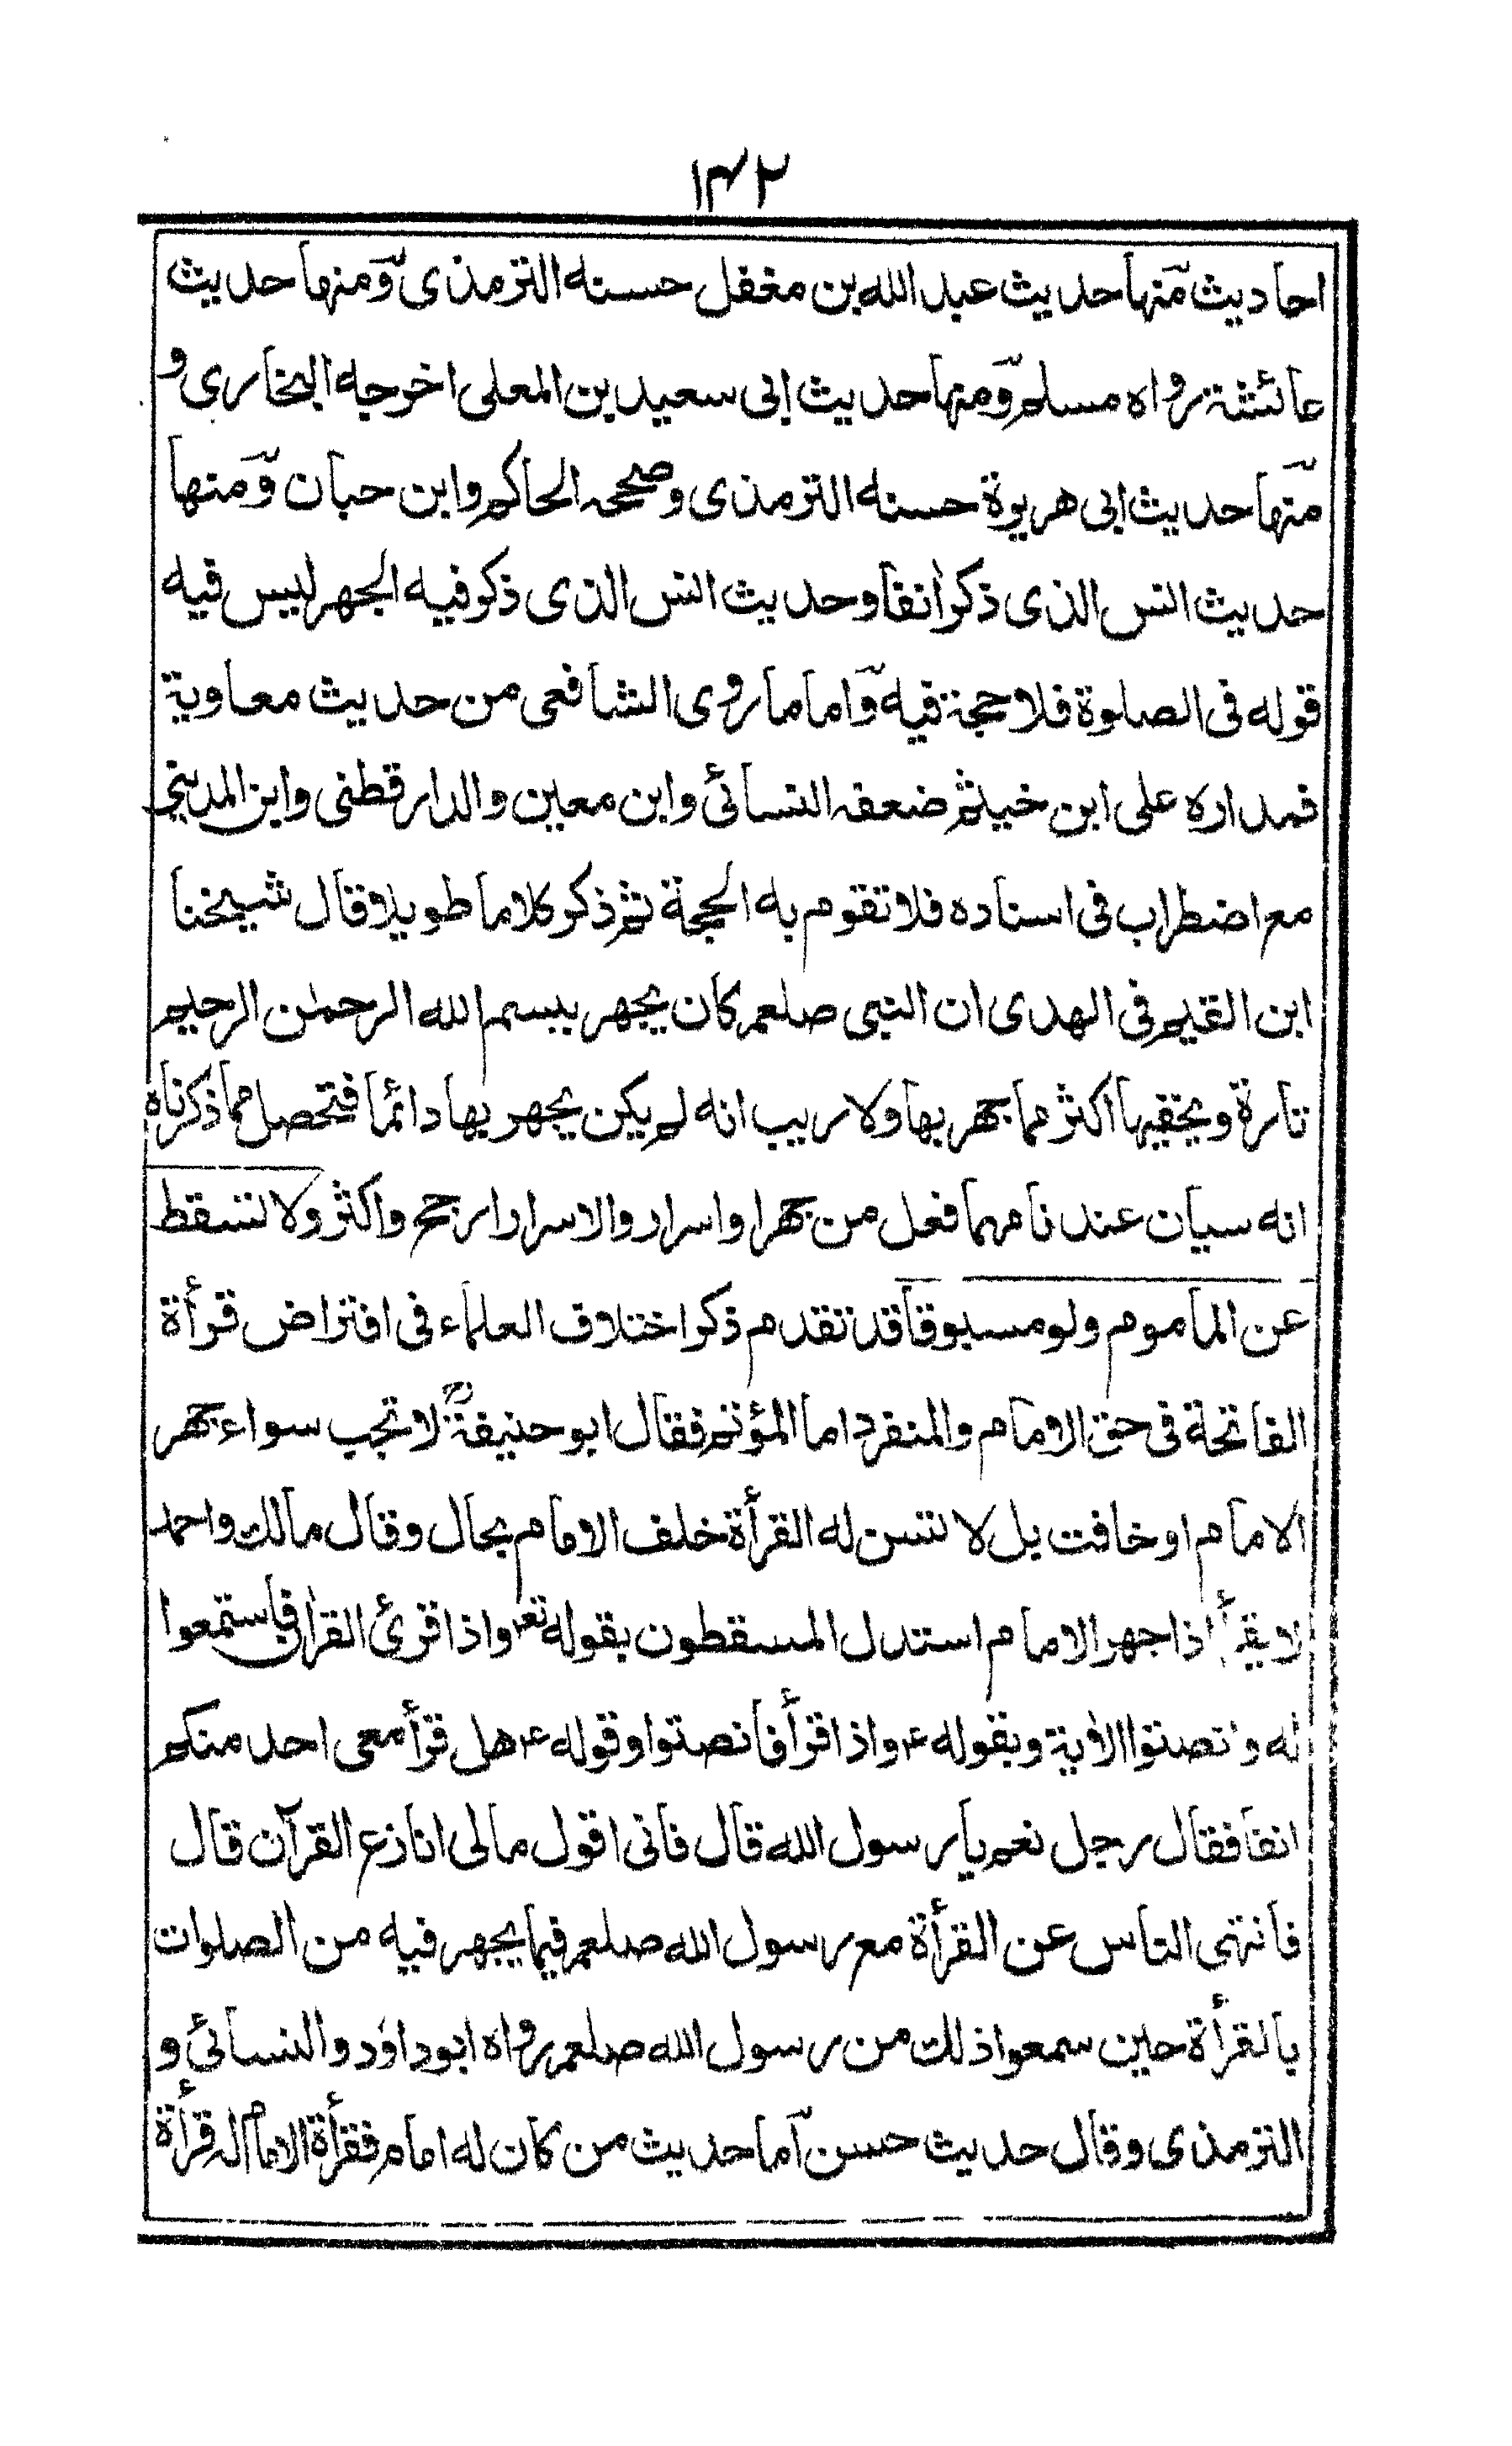 ۱۴۲
احاديث منها حديث عبد الله بن مغفل حسنه الترمذى ومنها حديث
عائشة رواه مسلم ومنها حديث ابى سعيد بن المعلى اخرجه البخارى و
منها حديث ابى هريرة حسنه الترمذى وصححه الحاكم وابن حبان ومنها
حديث انس الذى ذكر انفا وحديث انس الذى ذكر فيه الجهر ليس فيه
قوله فى الصلوة فلا حجة فيه واما ما روى الشافعى من حديث معاوية
فمداره على ابن خيثم ضعفه النسائى وابن معين والدارقطنى وابن المدينى
مع اضطراب فى اسناده فلا تقوم به الحجة ثم ذكر كلاما طويلا قال شيخنا
ابن القيم فى الهدى ان النبى صلعم كان يجهر ببسم الله الرحمٰن الرحيم
تارة ويخفيها اكثر مما جهر بها ولا ريب انه لم يكن يجهر بها دائما فتحصل مما ذكرناه
انه سيان عندنا مهما فعل من جهر او اسرار والاسرار ارجح واكثر ولا تسقط
عن المأموم ولو مسبوقا قد تقدم ذكر اختلاف العلماء فى افتراض قرأة
الفاتحة فى حق الامام والمنفرد اما المؤتم فقال ابو حنيفةؒ لا تجب سواء جهر
الامام او خافت بل لا تسن له القرأة خلف الامام بحال وقال مالك واحمد
لا يقرأ اذا جهر الامام استدل المسقطون بقوله تعر واذا قرئ القرآن فاستمعوا
له وانصتوا الآية وبقوله عر واذا قرأ فانصتوا وقوله عر هل قرأ معى احد منكم
انفا فقال رجل نعم يا رسول الله قال فانى اقول مالى انازع القرآن قال
فانتهى الناس عن القرأة مع رسول الله صلعم فيما يجهر فيه من الصلوات
بالقرأة حين سمعوا ذلك من رسول الله صلعم رواه ابو داؤد والنسائى و
الترمذى وقال حديث حسن اما حديث من كان له امام فقرأة الامام له قرأة